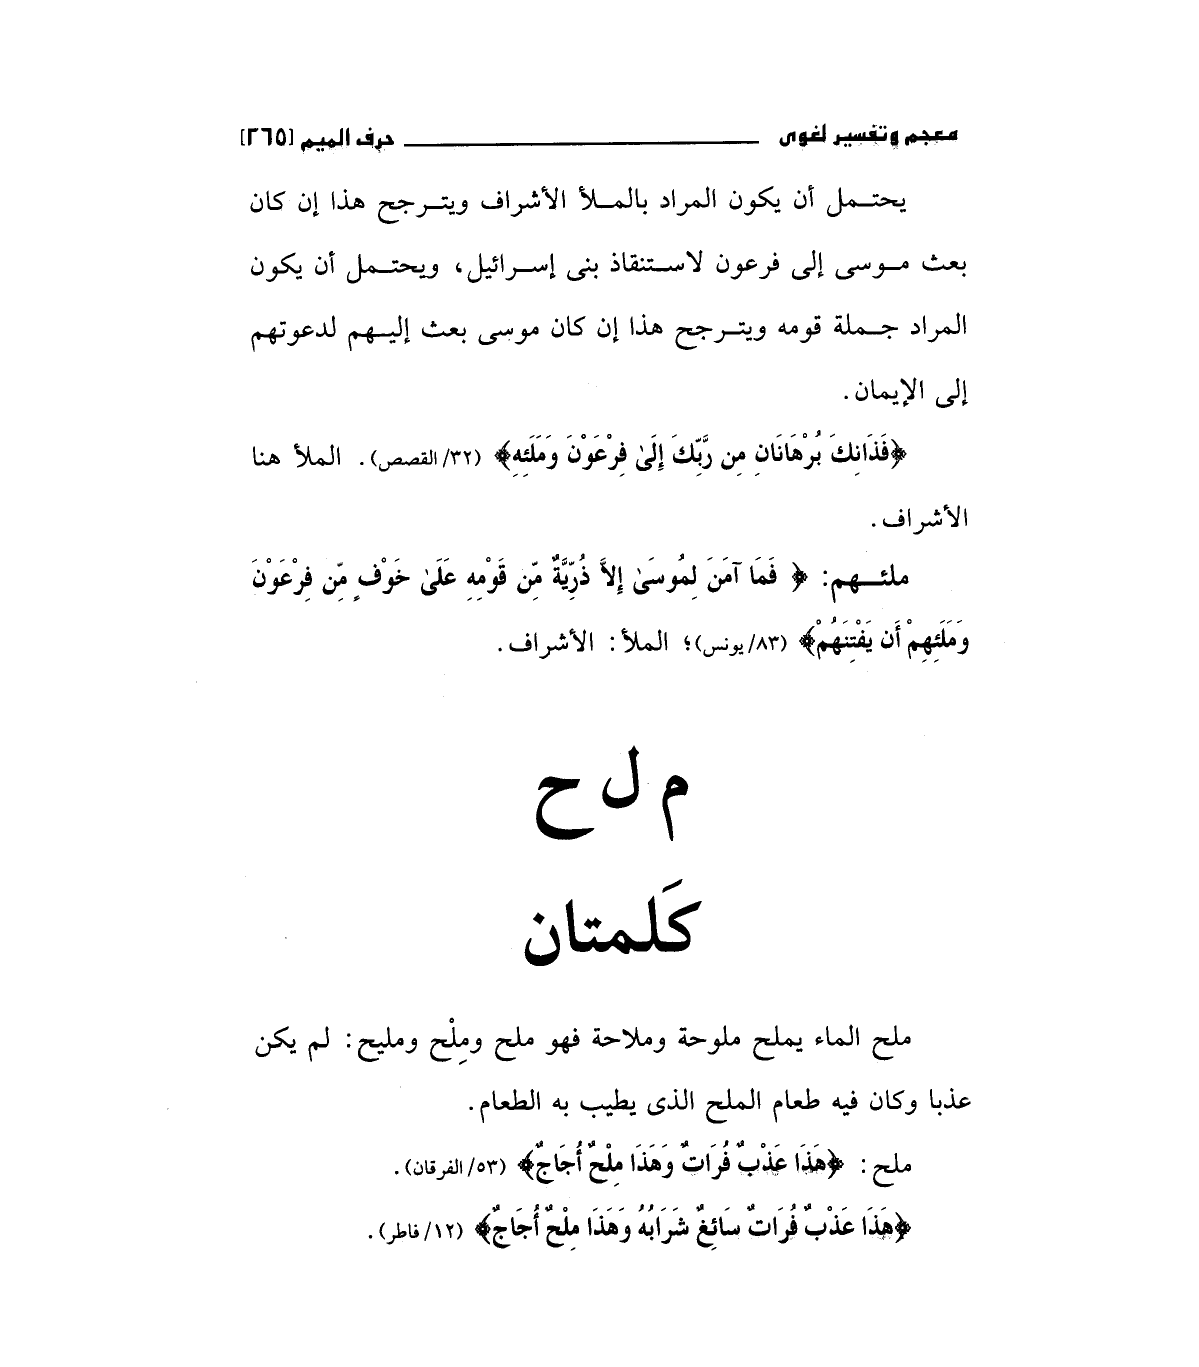 معجم وتفسير لغوى حرف الميم [٢٦٥]
يحتمل أن يكون المراد بالملأ الأشراف ويترجح هذا إن كان
بعث موسى إلى فرعون لاستنقاذ بنى إسرائيل، ويحتمل أن يكون
المراد جملة قومه ويترجح هذا إن كان موسى بعث إليهم لدعوتهم
إلى الإيمان.
﴿فَذَانِكَ بُرْهَانَانِ مِن رَّبِّكَ إِلَىٰ فِرْعَوْنَ وَمَلَئِهِ﴾ (٣٢/ القصص). الملأ هنا
الأشراف.
ملئهم: ﴿ فَمَا آمَنَ لِمُوسَى إِلاَّ ذُرِّيَّةٌ مِّن قَوْمِهِ عَلَىٰ خَوْفٍ مِّن فِرْعَوْنَ
وَمَلَئِهِمْ أَن يَفْتِنَهُمْ﴾ (٨٣/ يونس)؛ الملأ: الأشراف.
م ل ح
كَلمتان
ملح الماء يملح ملوحة وملاحة فهو ملح ومِلْح ومليح: لم يكن
عذبا وكان فيه طعام الملح الذى يطيب به الطعام.
ملح: ﴿هَذَا عَذْبٌ فُرَاتٌ وَهَذَا مِلْحٌ أُجَاجٌ﴾ (٥٣/ الفرقان).
﴿هَذَا عَذْبٌ فُرَاتٌ سَائِغٌ شَرَابُهُ وَهَذَا مِلْحٌ أُجَاجٌ﴾ (١٢/ فاطر).